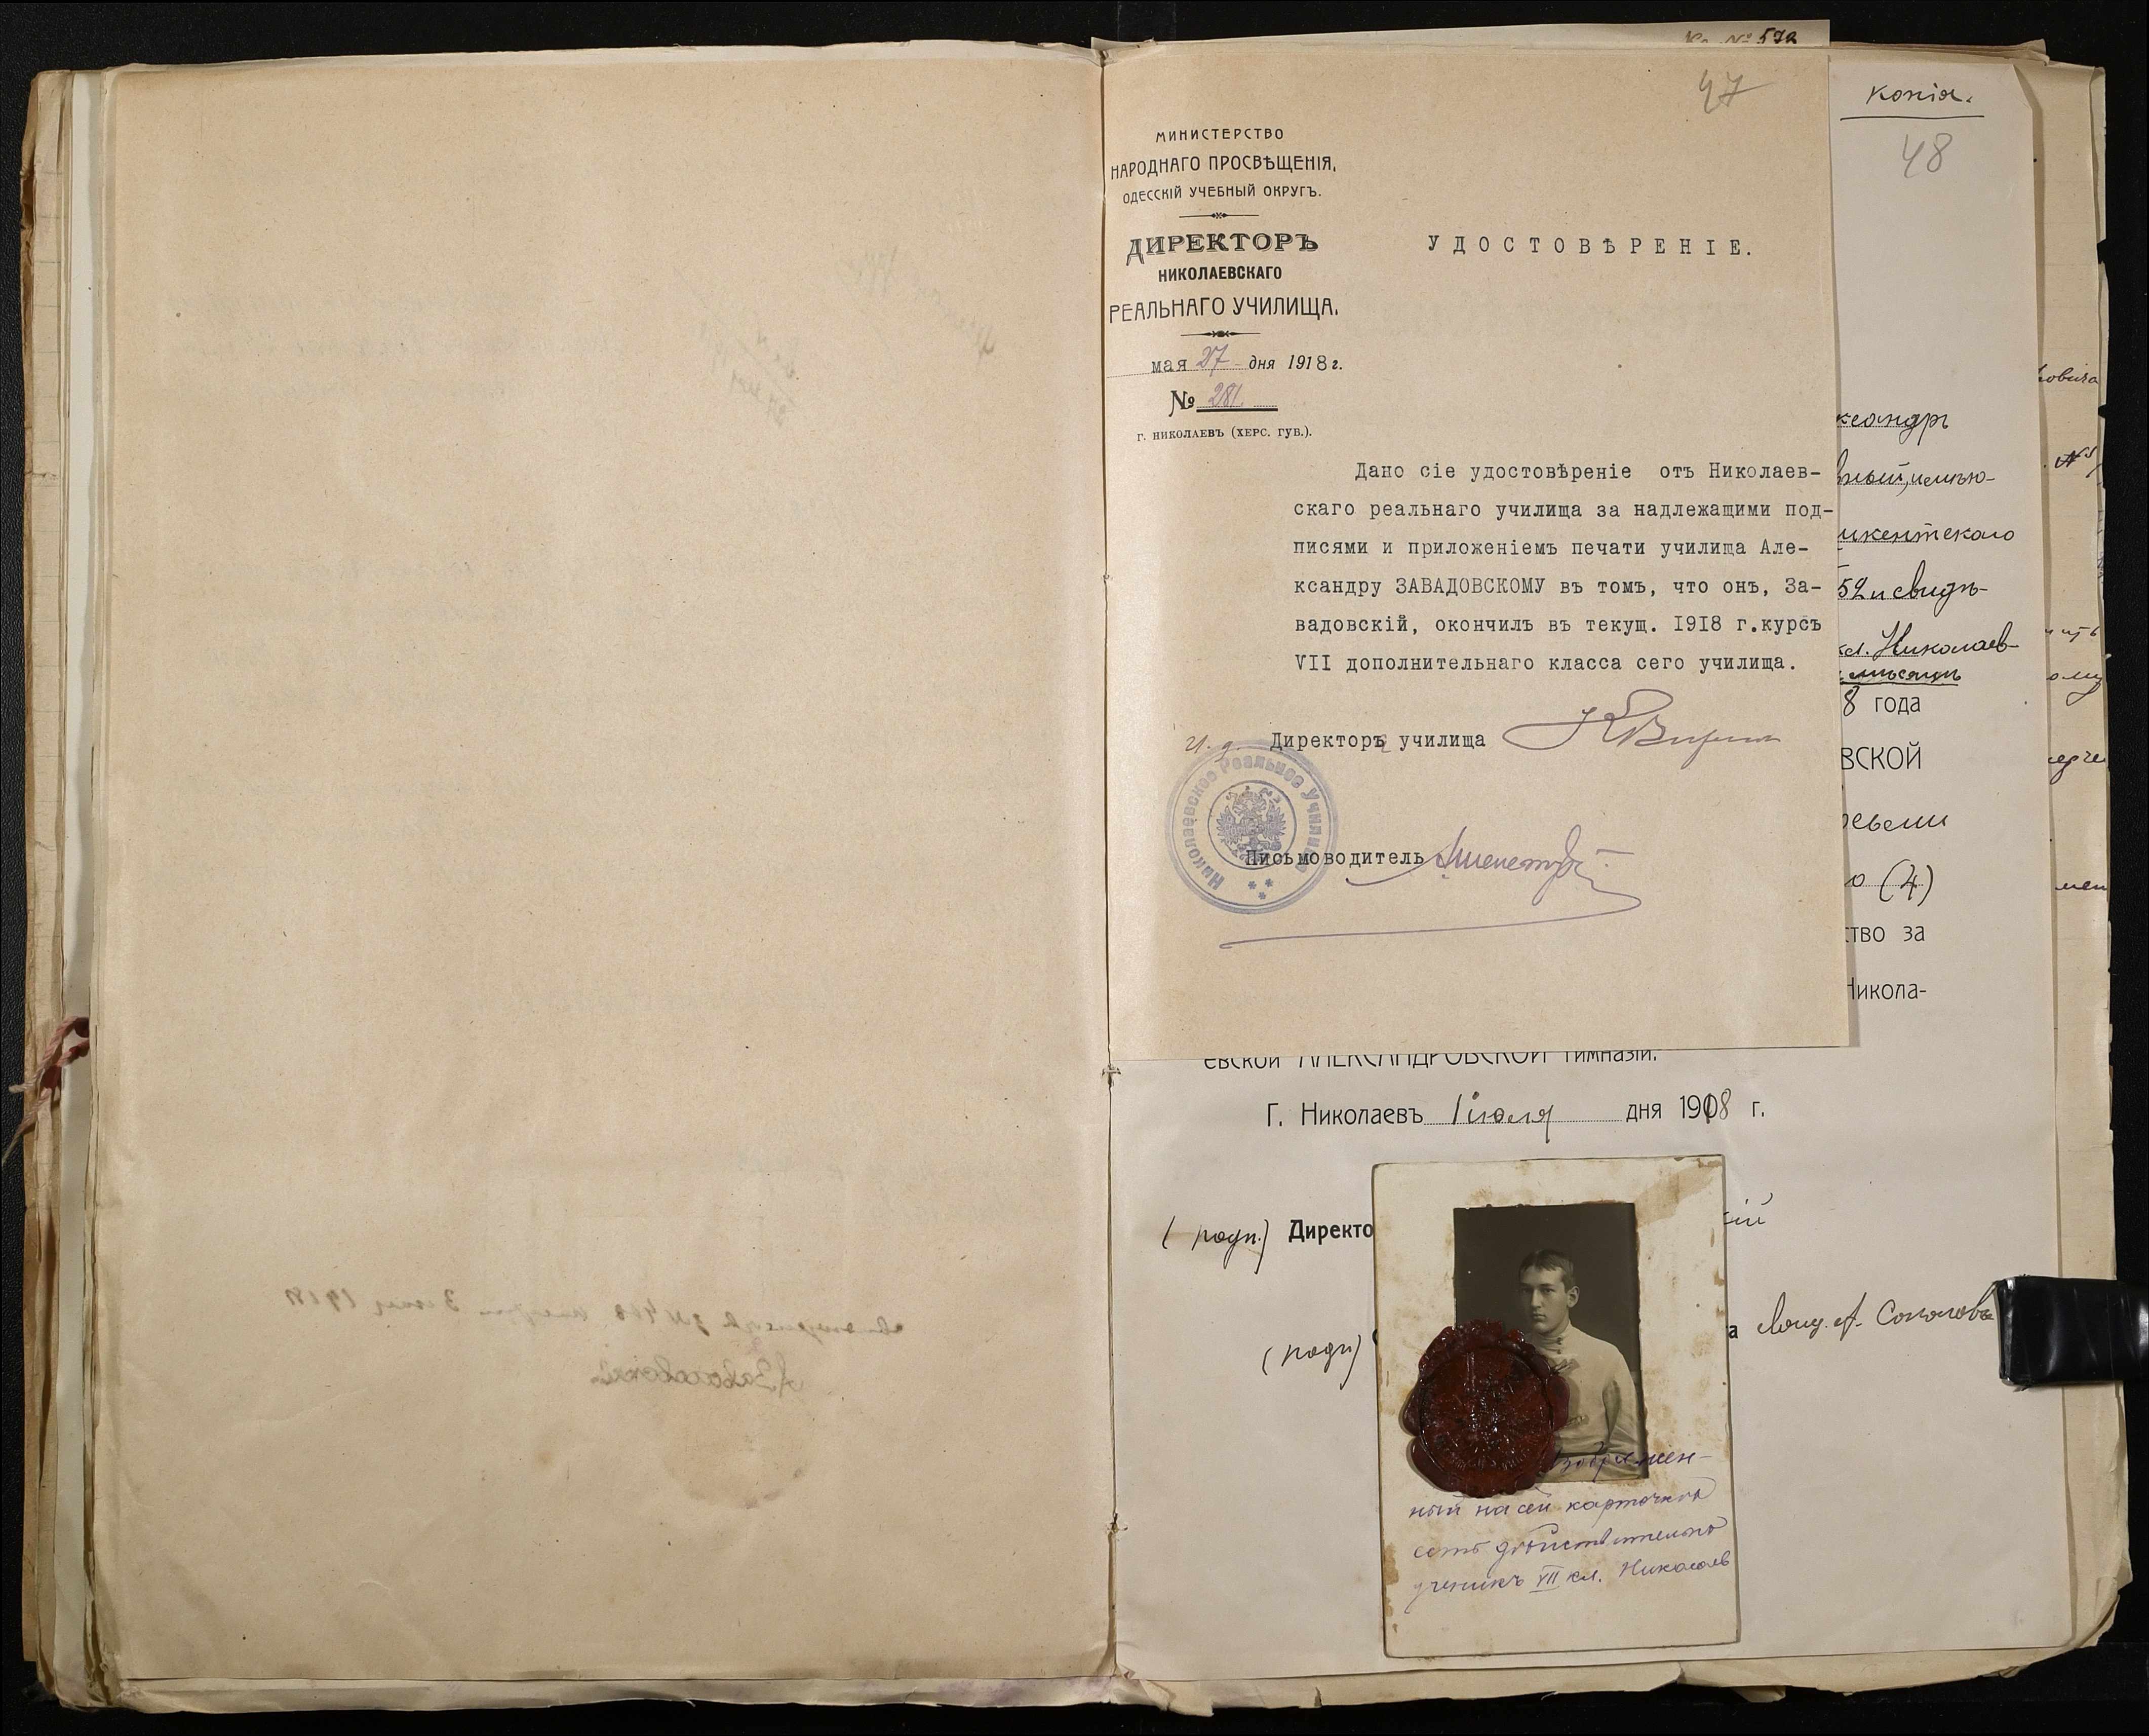 № 572
47
МИНИСТЕРСТВО
НАРОДНАГО ПРОСВѢЩЕНІЯ,
ОДЕССКІЙ УЧЕБНЫЙ ОКРУГЪ.
ДИРЕКТОРЪ
НИКОЛАЕВСКАГО
РЕАЛЬНАГО УЧИЛИЩА.
мая 27 дня 1918 г.
№ 281
Г. НИКОЛАЕВЪ (ХЕРС. ГУБ.).
УДОСТОВѢРЕНІЕ.
Дано сіе удостовѣреніе отъ Николаев-
скаго реальнаго училища за надлежащими под-
писями и приложеніемъ печати училища Але-
ксандру ЗАВАДОВСКОМУ въ томъ, что онъ, За-
вадовскій, окончилъ въ текущ. 1918 г.курсъ
VII дополнительнаго класса сего училища.
И. д. Директора училища
Письмоводитель
Николаевское Реальное Училище
Копія.
48
ксандръ
вный, имѣю-
шкентскаго
52 и свидѣ-
кл. Николаев-
мѣсяцъ
8 года
ВСКОЙ
о (4)
тво за
Никола-
евской АЛЕКСАНДРОВСКОЙ гимназіи.
Г. Николаевъ 1 іюля дня 1918 г.
(подп.) Директо
кій
(подп)
а А. Соколовъ
зображен-
ный на сей карточкѣ
есть дѣйствительно
ученикъ VII кл. Николаев